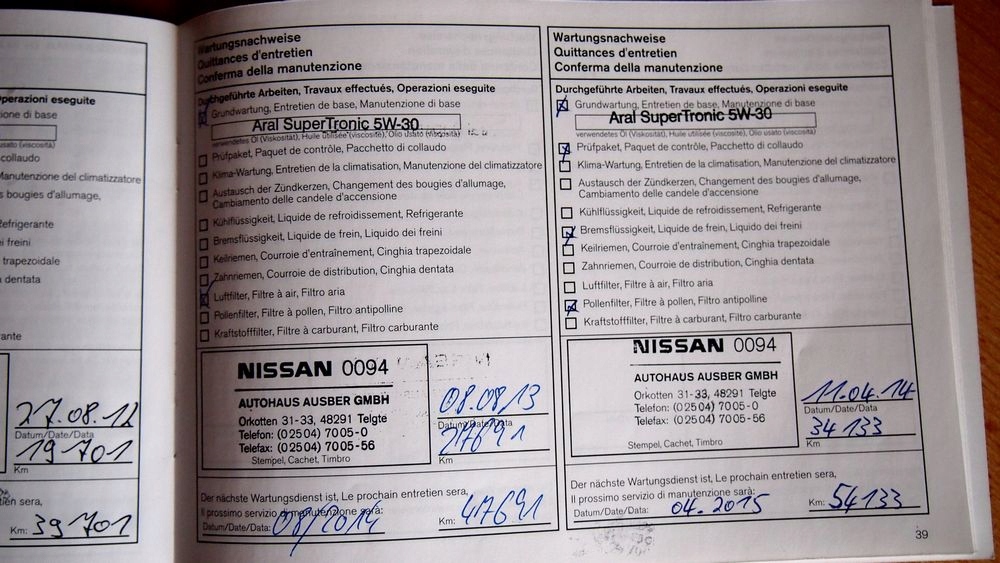 perazioni eseguite
zione di base
usato (viscosità)
collaudo
Manutenzione del climatizzatore
s bougies d'allumage,
Refrigerante
i freini
trapezoidale
dentata
ante
27.08.12
Datum/Date/Data
19701
Km
tien sera,
Km: 39701
Wartungsnachweise
Quittances d'entretien
Conferma della manutenzione
Durchgeführte Arbeiten, Travaux effectués, Operazioni eseguite
Grundwartung, Entretien de base, Manutenzione di base
Aral SuperTronic 5W-30
verwendetes Öl (Viskosität), Huile utilisée (viscosité), Olio usato (viscosità)
Prüfpaket, Paquet de contrôle, Pacchetto di collaudo
Klima-Wartung, Entretien de la climatisation, Manutenzione del climatizzatore
Austausch der Zündkerzen, Changement des bougies d'allumage,
Cambiamento delle candele d'accensione
Kühlflüssigkeit, Liquide de refroidissement, Refrigerante
Bremsflüssigkeit, Liquide de frein, Liquido dei freini
Keilriemen, Courroie d'entraînement, Cinghia trapezoidale
Zahnriemen, Courroie de distribution, Cinghia dentata
Luftfilter, Filtre à air, Filtro aria
Pollenfilter, Filtre à pollen, Filtro antipolline
Kraftstofffilter, Filtre à carburant, Filtro carburante
NISSAN 0094
AUTOHAUS AUSBER GMBH
Orkotten 31-33, 48291 Telgte
Telefon: (02504) 7005-0
Telefax: (02504) 7005-56
Stempel, Cachet, Timbro
08.08/13
Datum/Date/Data
27691
Km
Der nächste Wartungsdienst ist, Le prochain entretien sera,
Il prossimo servizio di manutenzione sarà:
Datum/Date/Data: 08/2014
Km: 47691
Wartungsnachweise
Quittances d'entretien
Conferma della manutenzione
Durchgeführte Arbeiten, Travaux effectués, Operazioni eseguite
Grundwartung, Entretien de base, Manutenzione di base
Aral SuperTronic 5W-30
verwendetes Öl (Viskosität), Huile utilisée (viscosité), Olio usato (viscosità)
Prüfpaket, Paquet de contrôle, Pacchetto di collaudo
Klima-Wartung, Entretien de la climatisation, Manutenzione del climatizzatore
Austausch der Zündkerzen, Changement des bougies d'allumage,
Cambiamento delle candele d'accensione
Kühlflüssigkeit, Liquide de refroidissement, Refrigerante
Bremsflüssigkeit, Liquide de frein, Liquido dei freini
Keilriemen, Courroie d'entraînement, Cinghia trapezoidale
Zahnriemen, Courroie de distribution, Cinghia dentata
Luftfilter, Filtre à air, Filtro aria
Pollenfilter, Filtre à pollen, Filtro antipolline
Kraftstofffilter, Filtre à carburant, Filtro carburante
NISSAN 0094
AUTOHAUS AUSBER GMBH
Orkotten 31-33, 48291 Telgte
Telefon: (02504) 7005-0
Telefax: (02504) 7005-56
Stempel, Cachet, Timbro
11.04.14
Datum/Date/Data
34133
Km
Der nächste Wartungsdienst ist, Le prochain entretien sera,
Il prossimo servizio di manutenzione sarà:
Datum/Date/Data: 04.2015
Km: 54133
39